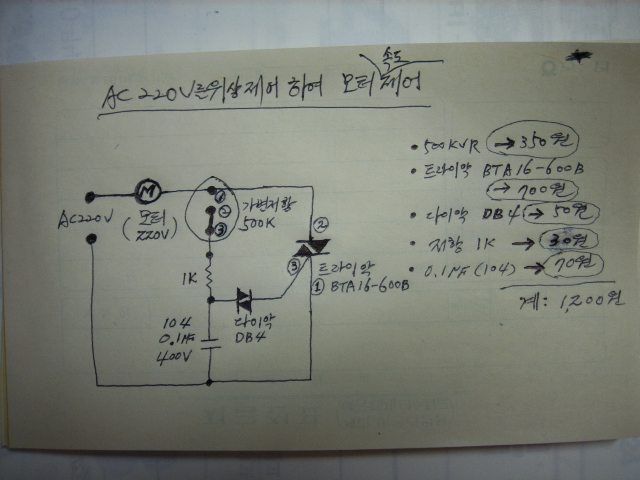 속도
AC 220V를 위상제어 하여 모터 제어
• 500K VR → 350원
• 트라이악 BTA16-600B
→ 700원
• 다이악 DB4 → 50원
• 저항 1K → 30원
• 0.1㎌ (104) → 70원
계: 1,200원
M
AC220V
모터
220V
①
②
③
가변저항
500K
1K
②
③
트라이악
① BTA16-600B
다이악
DB4
104
0.1㎌
400V